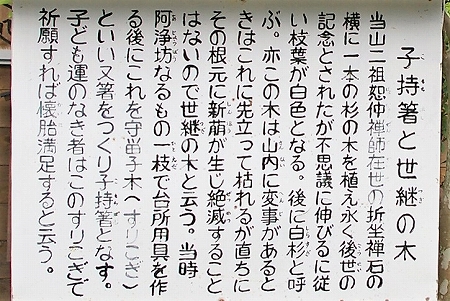 子持箸と世継の木
当山二祖恕仲禅師在世の折坐禅石の
横に一本の杉の木を植え永く後世の
記念とされたが不思議に伸びるに従
い枝葉が白色となる。後に白杉と呼
ぶ。亦この木は山内に変事があると
きはこれに先立って枯れるが直ちに
その根元に新萌が生じ絶滅すること
はないので世継の木と云う。当時
阿浄坊なるもの一枝で台所用具を作
る後にこれを守畄子木（すりこぎ）
といい又箸をつくり子持箸となす。
子ども運のなき者はこのすりこぎで
祈願すれば懐胎満足すると云う。